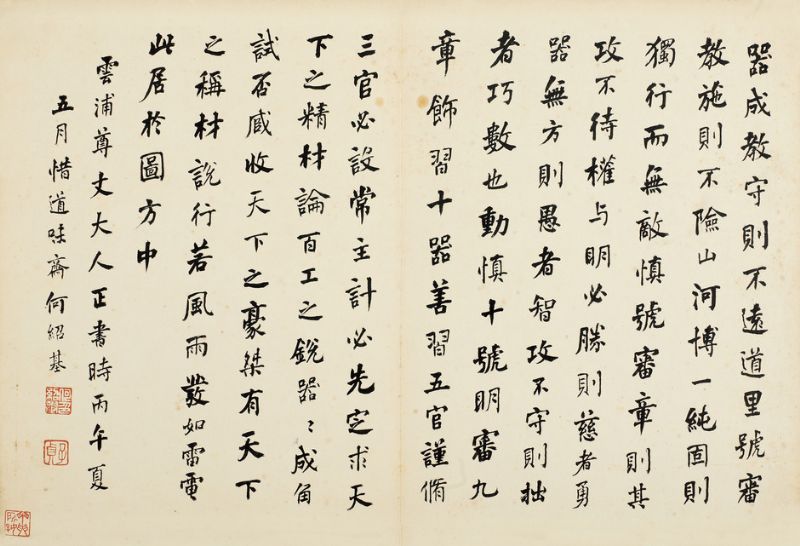 器成教守則不遠道里號審
教施則不險山河博一純固則
獨行而無敵慎號審章則其
攻不待權与明必勝則慈者勇
器無方則愚者智攻不守則拙
者巧數也動慎十號明審九
章飾習十器善習五官謹脩
三官必設常主計必先定求天
下之精材論百工之銳器〻成角
試否臧收天下之豪桀有天下
之稱材說行若風雨發如雷電
此居於圖方中
雲浦尊丈大人正書時丙午夏
五月惜道味齋何紹基
子貞